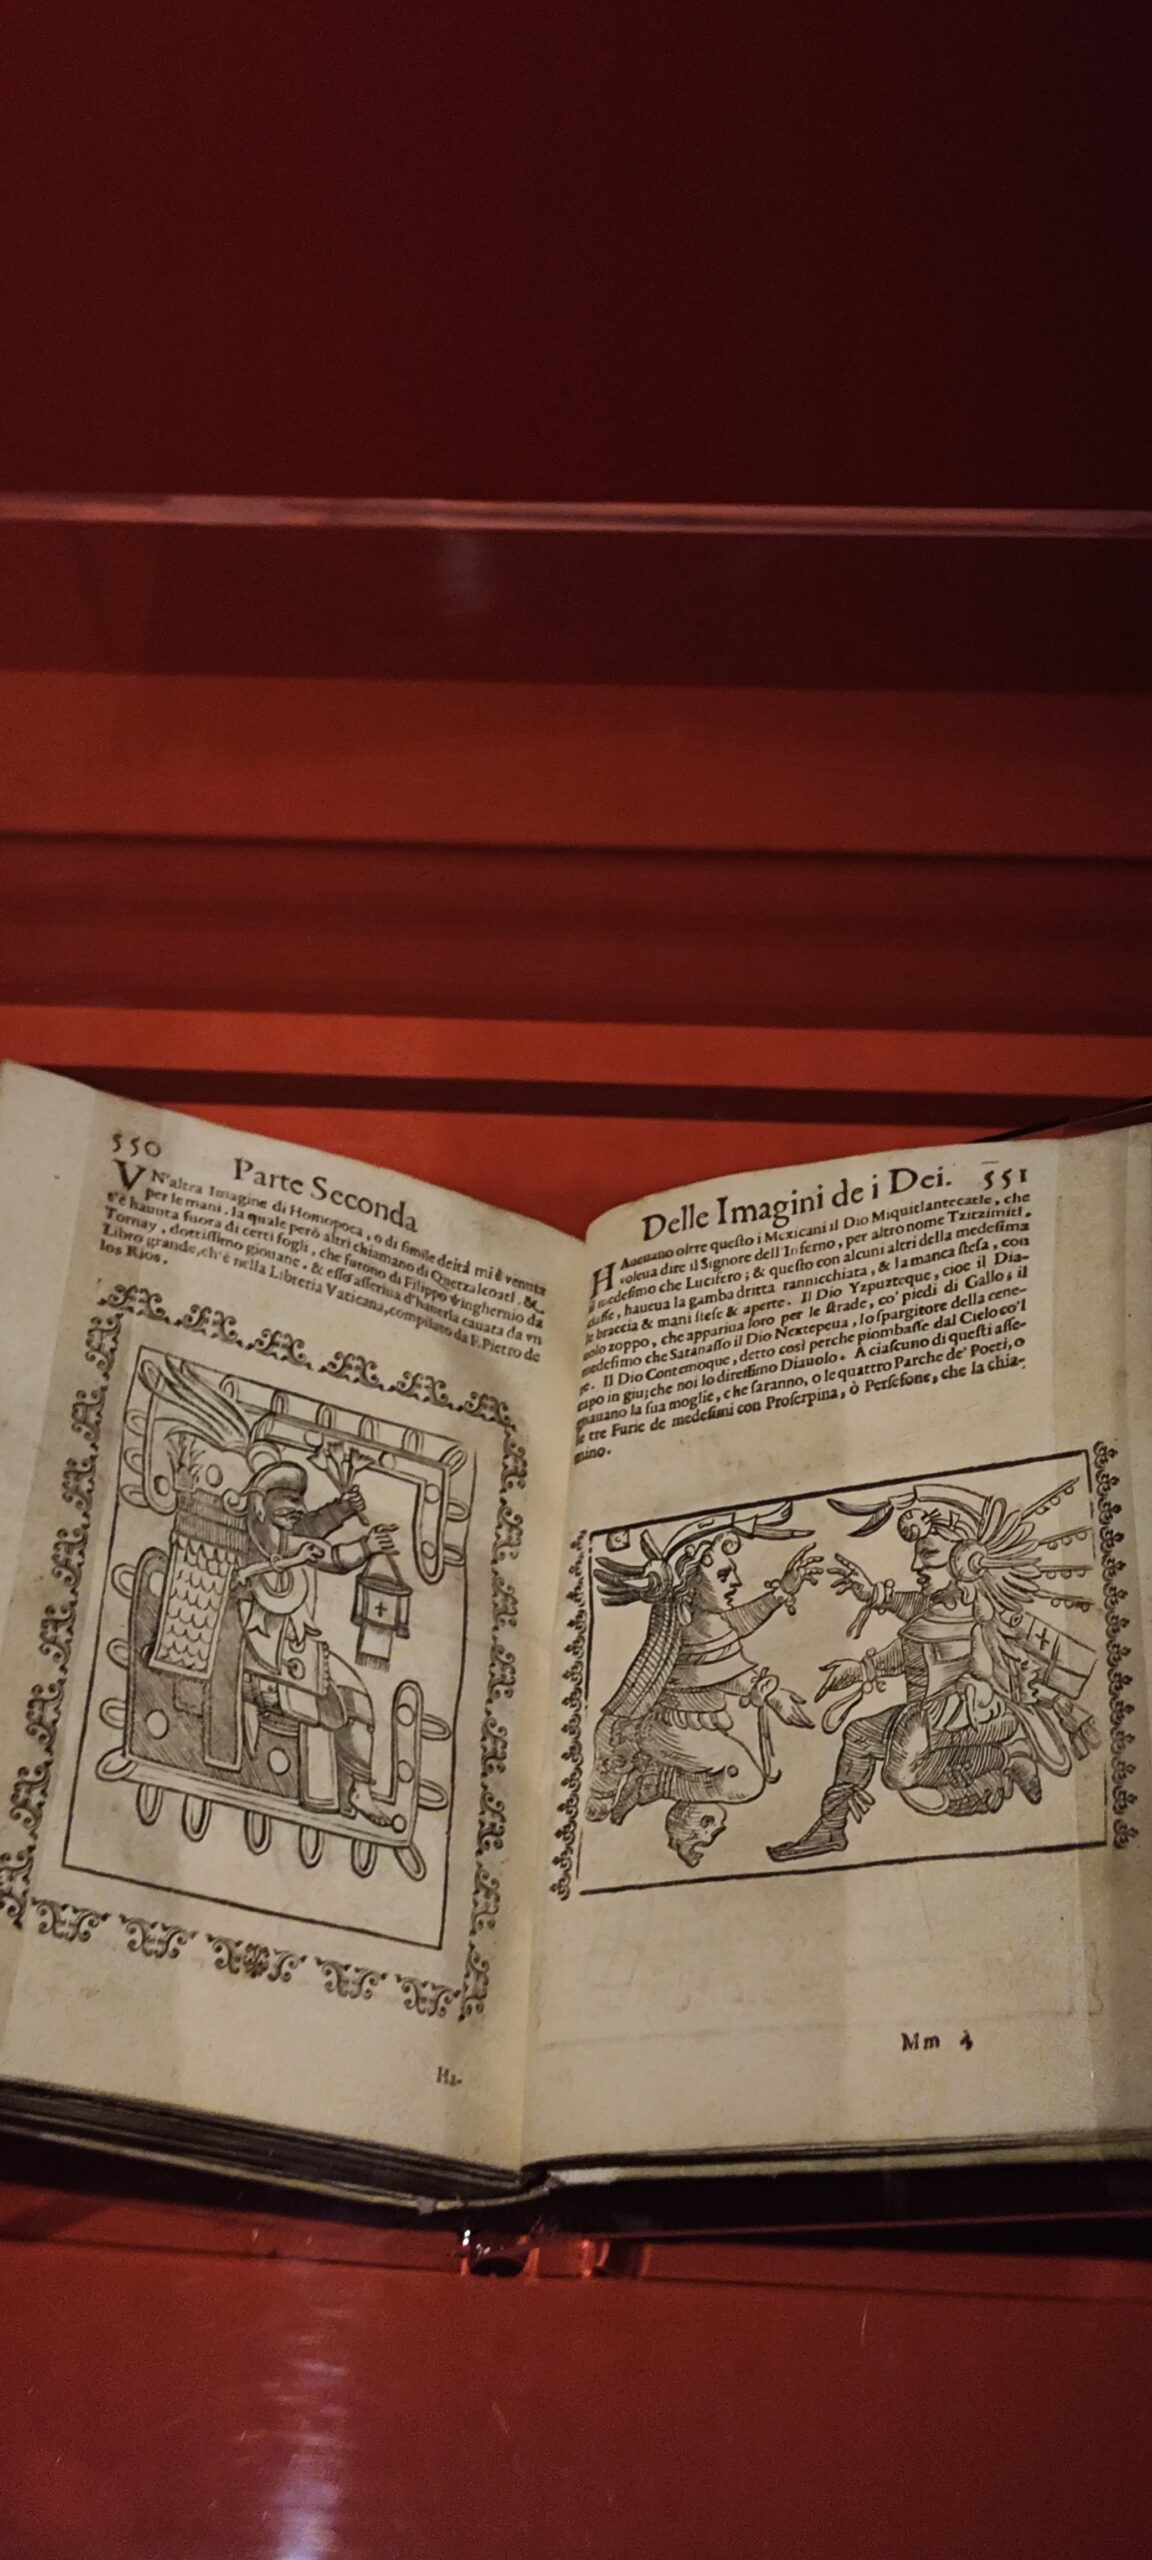 550
Parte Seconda
VN'altra Imagine di Homopoca, o di simile deità mi è venuta
per le mani, la quale però altri chiamano di Quetzalcoatl, &
s'è hauuta fuora di certi fogli, che furono di Filippo Vvinghernio da
Tornay, dottissimo giouane, & esso asseriua d'hauerla cauata da vn
Libro grande, ch'è nella Libreria Vaticana, compilato da F. Pietro de
los Rios.
Ha-
Delle Imagini de i Dei. 551
HAueuano oltre questo i Mexicani il Dio Miquitlantecatle, che
voleua dire il Signore dell'Inferno, per altro nome Tzitzimitl,
il medesimo che Lucifero; & questo con alcuni altri della medesima
classe, haueua la gamba dritta rannicchiata, & la manca stesa, con
le braccia & mani stese & aperte. Il Dio Yzpuzteque, cioe il Dia-
uolo zoppo, che appariua loro per le strade, co' piedi di Gallo; il
medesimo che Satanasso il Dio Nextepeua, lo spargitore della cene-
re. Il Dio Contemoque, detto così perche piombasse dal Cielo co'l
capo in giu; che noi lo diressimo Diauolo. A ciascuno di questi asse-
gnauano la sua moglie, che saranno, o le quattro Parche de' Poeti, o
le tre Furie de medesimi con Proserpina, ò Persefone, che la chia-
mino.
Mm 4